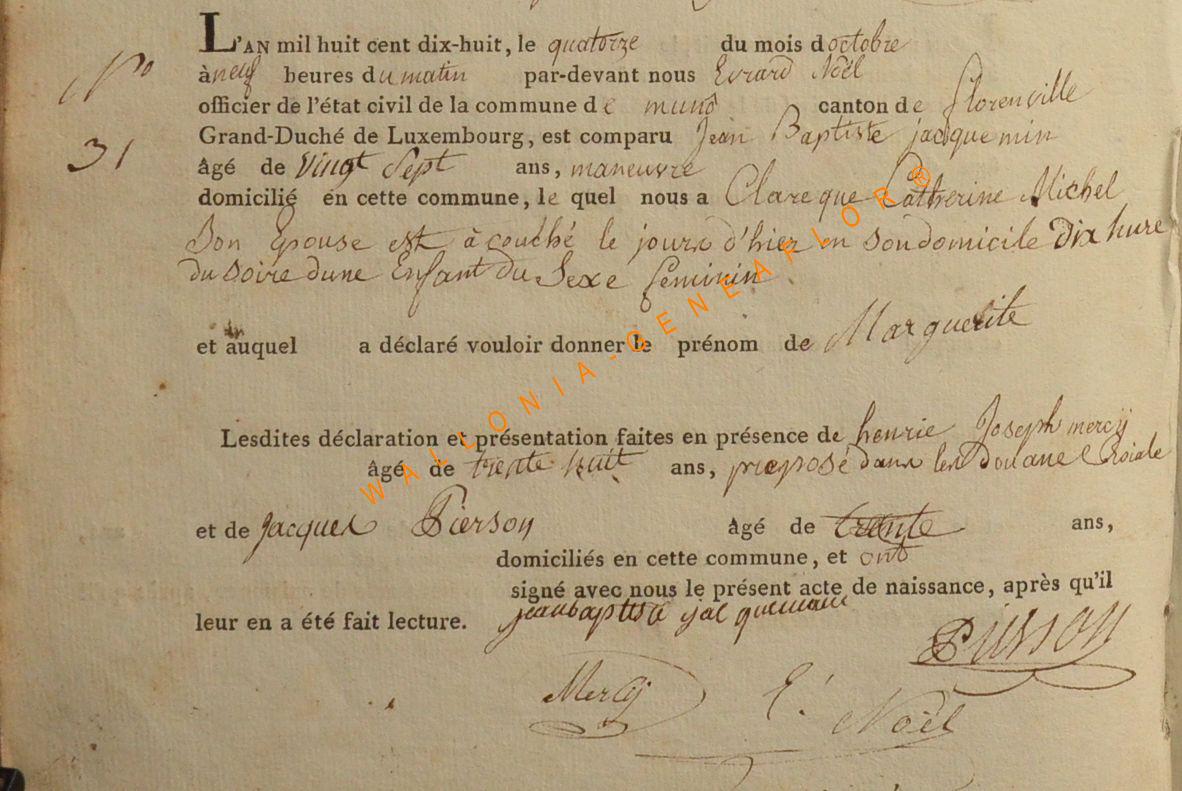 L'AN mil huit cent dix-huit, le quatorze du mois doctobre
N.o à neuf heures du matin par-devant nous Evrard Noël
officier de l'état civil de la commune de muno canton de florenville
31 Grand-Duché de Luxembourg, est comparu Jean Baptiste jacquemin
âgé de vingt Sept ans, maneuvre
domicilié en cette commune, le quel nous a Clare que Catherine Michel
Son Epouse est àcouché le jourx d'hier en son domicile dix hure
du soire dune Enfant du Sexe feminin
et auquel a déclaré vouloir donner le prénom de Marguerite
Lesdites déclaration et présentation faites en présence de henrie Joseph mercy
âgé de trente huit ans, preposé dans les douane Roiale
et de Jacques Pierson âgé de trente ans,
domiciliés en cette commune, et ont
signé avec nous le présent acte de naissance, après qu'il
leur en a été fait lecture. jean baptiste
Pierson
Mercy E. Noël
WALLONIA-GENEARLOR®